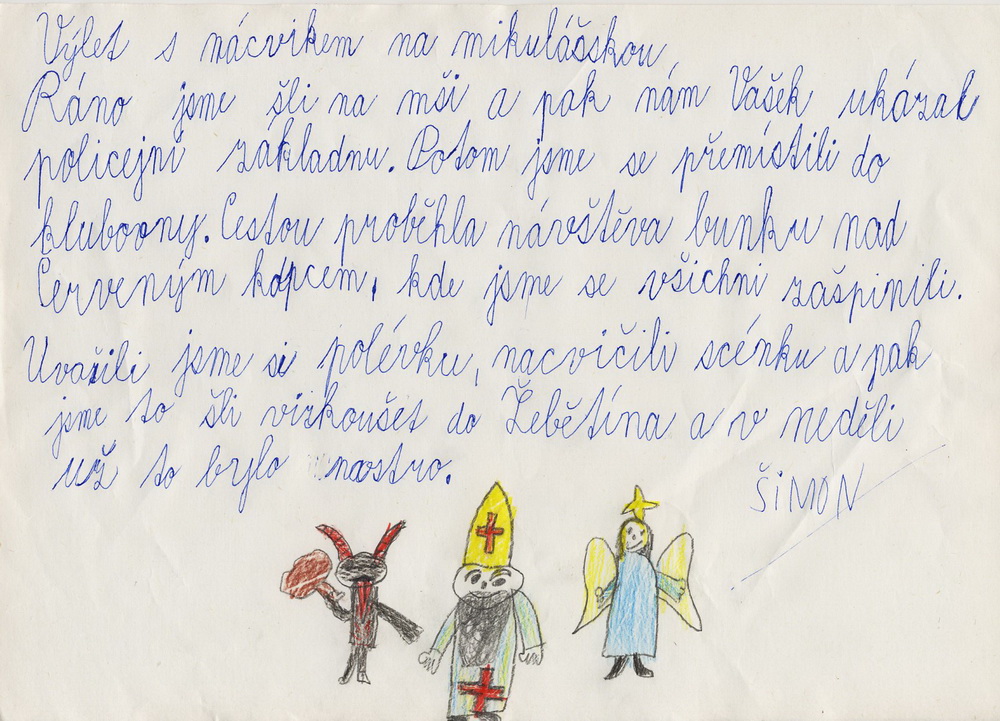 Výlet s nácvikem na mikulášskou
Ráno jsme šli na mši a pak nám Vašek ukázal
policejní základnu. Potom jsme se přemístili do
klubovny. Cestou proběhla návštěva bunkru nad
Červeným kopcem, kde jsme se všichni zašpinili.
Uvařili jsme si polévku, nacvičili scénku a pak
jsme to šli vizkoušet do Žebětína a v neděli
už to bylo naostro.
ŠiMON